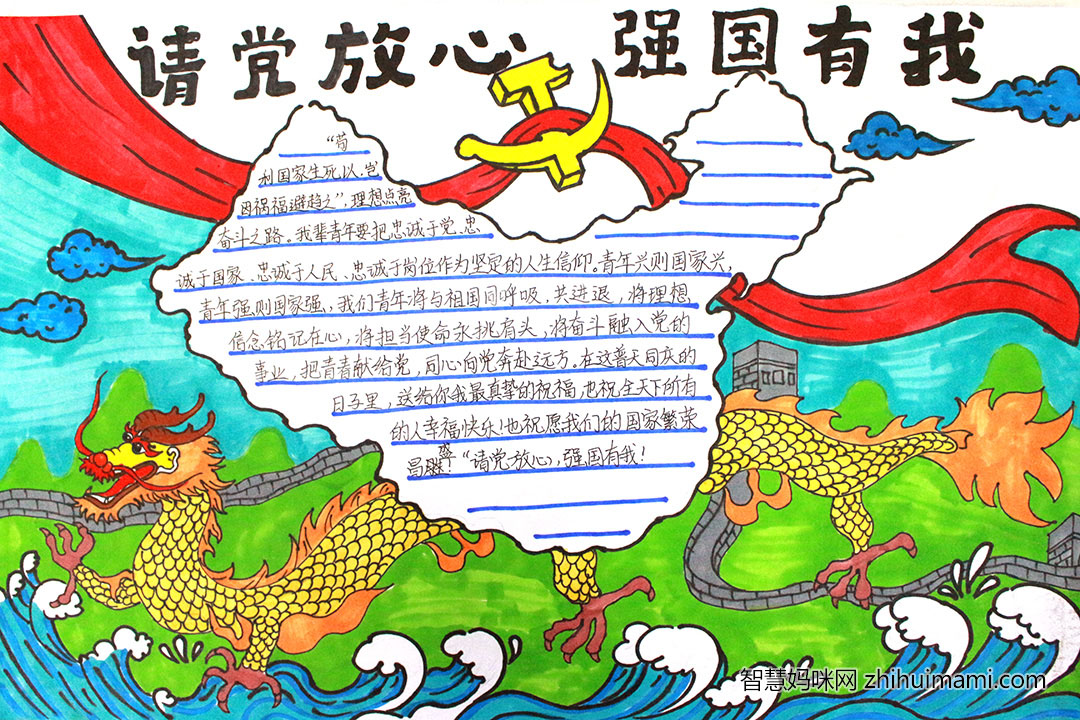 请党放心 强国有我
“苟
利国家生死以,岂
因祸福避趋之”,理想点亮
奋斗之路。我辈青年要把忠诚于党、忠
诚于国家、忠诚于人民、忠诚于岗位作为坚定的人生信仰。青年兴则国家兴,
青年强则国家强,我们青年将与祖国同呼吸,共进退,将理想
信念铭记在心,将担当使命永挑肩头,将奋斗融入党的
事业,把青春献给党,同心向党奔赴远方。在这普天同庆的
日子里,送给你我最真挚的祝福,也祝全天下所有
的人幸福快乐!也祝愿我们的国家繁荣
昌盛!“请党放心,强国有我!
智慧妈咪网 zhihuimami.com